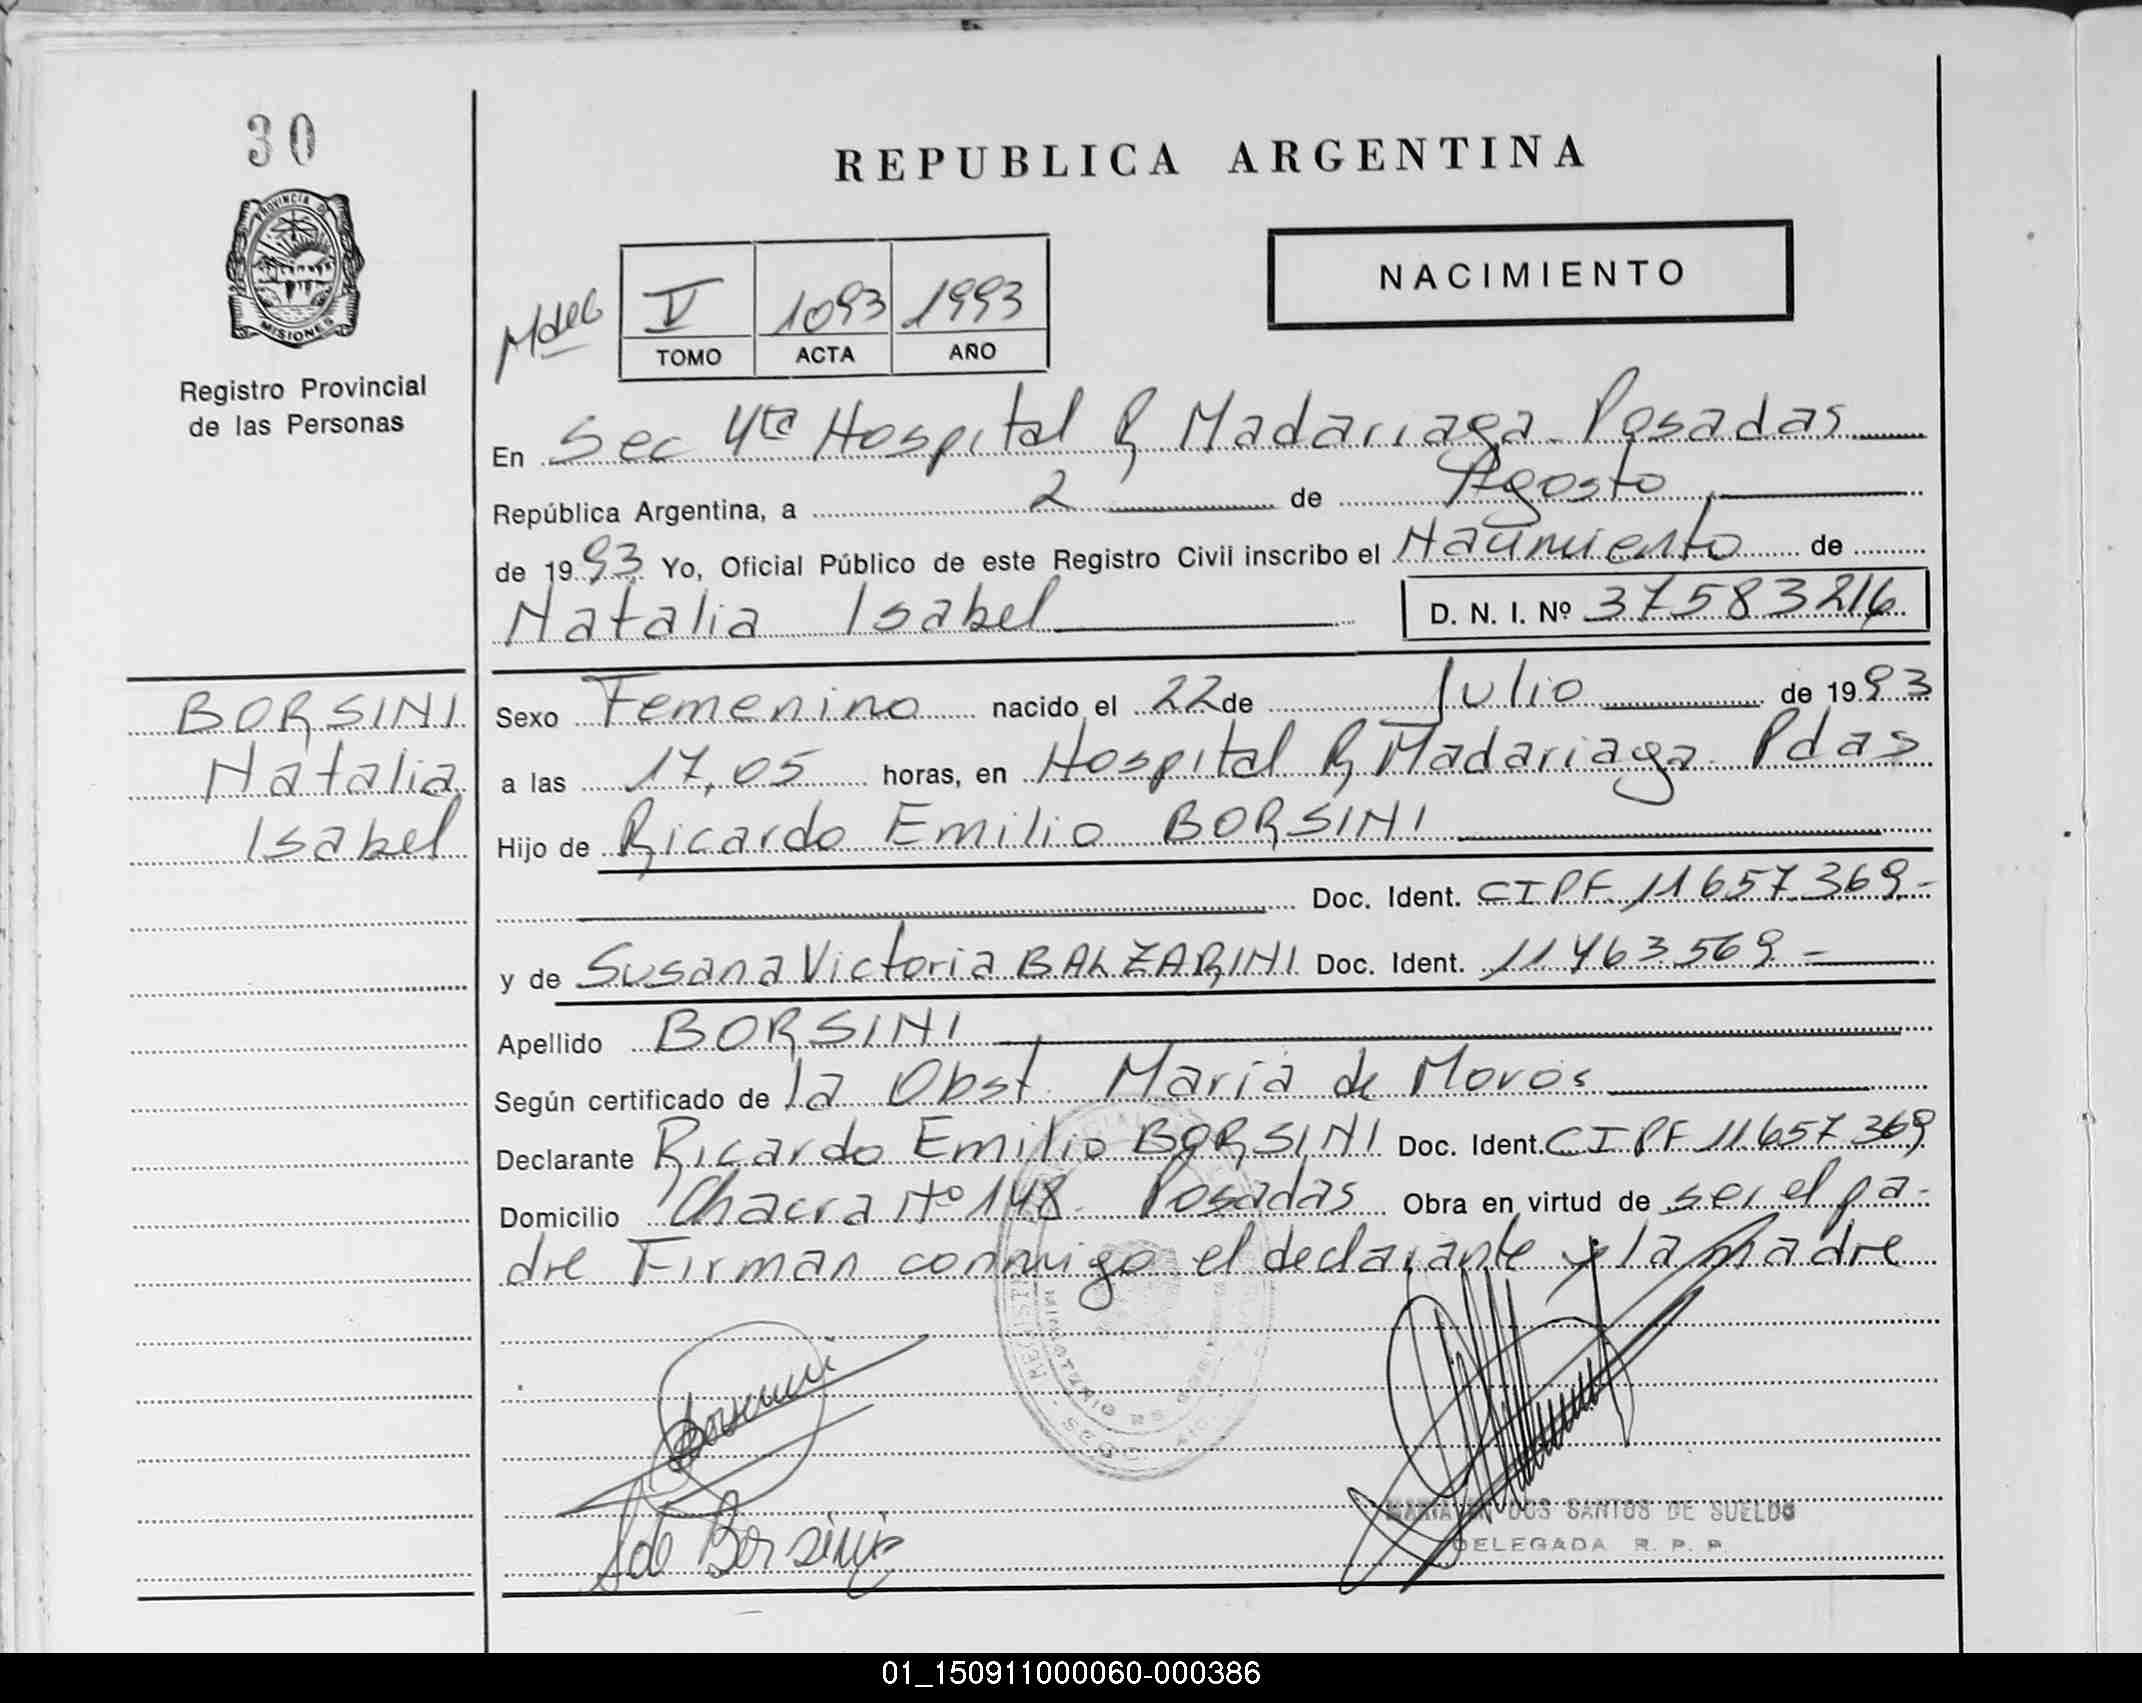 30
PROVINCIA DE
MISIONES
Registro Provincial
de las Personas
REPUBLICA ARGENTINA
NACIMIENTO
V 1093 1993
TOMO ACTA AÑO
En Sec 4ta Hospital R Madariaga Posadas
República Argentina, a 2 de Agosto
de 1993 Yo, Oficial Público de este Registro Civil inscribo el Nacimiento de
Natalia Isabel D. N. I. Nº 37583216
BORSINI
Natalia
Isabel
Sexo Femenino nacido el 22 de Julio de 1993
a las 17,05 horas, en Hospital R Madariaga Pdas
Hijo de Ricardo Emilio BORSINI
Doc. Ident. CIPF. 11657.369.-
y de Susana Victoria BALZARINI Doc. Ident. 11463569 -
Apellido BORSINI
Según certificado de la Obst. Maria de Moros
Declarante Ricardo Emilio BORSINI Doc. Ident. CIPF 11657369
Domicilio Chacra Nº 148. Posadas Obra en virtud de ser el pa-
dre Firman conmigo el declarante y la madre
S de Borsini
DOS SANTOS DE SUELDO
DELEGADA R. P. P.
01_150911000060-000386